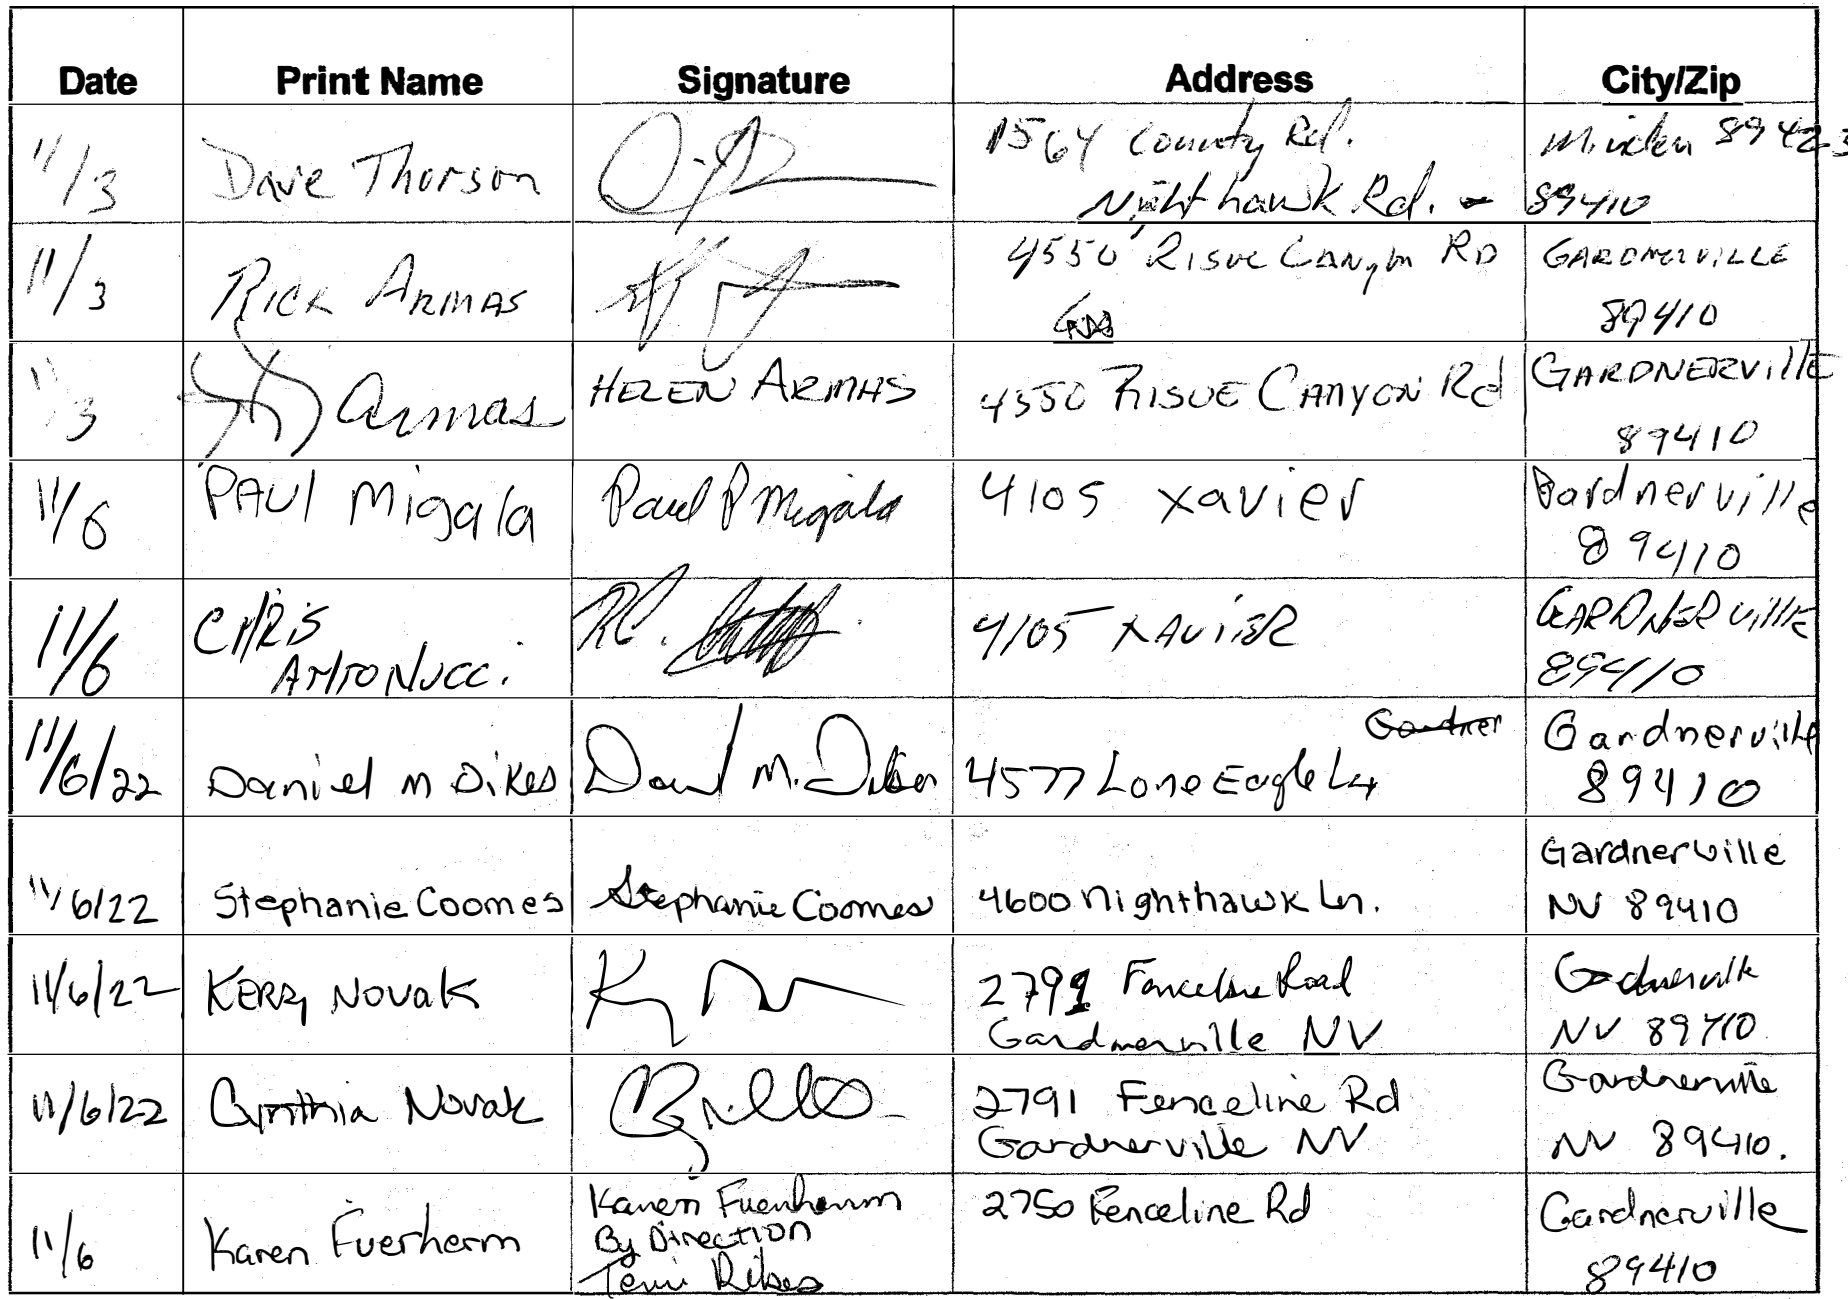 Date Print Name Signature Address City/Zip
11/3 Dave Thorson 1564 County Rd. Minden 89423
Nighthawk Rd. - 89410
11/3 Rick Armas 4550 Risue Canyon RD GARDNERVILLE
89410
11/3 Armas HELEN ARMAS 4550 RISUE CANYON Rd GARDNERVillE
89410
11/6 PAUl Migala Paul P Migala 4105 Xavier Gardnerville
89410
11/6 CHRIS 4105 XAViER GARDNERVillE
ANTONUCCi. 89410
Gardner Gardnerville
11/6/22 Daniel M Dikes M. 4577 Lone Eagle Ln 89410
Gardnerville
11/6/22 Stephanie Coomes Stephanie Coomes 4600 Nighthawk Ln. NV 89410
11/6/22 KERRy NOVAK 2791 Fenceline Road Gardnerville
Gardnerville NV NV 89410
11/6/22 Cynthia Novak 2791 Fenceline Rd Gardnerville
Gardnerville NV NV 89410.
11/6 Karen Fuerherm Karen Fuerherm 2750 Fenceline Rd Gardnerville
By Direction 89410